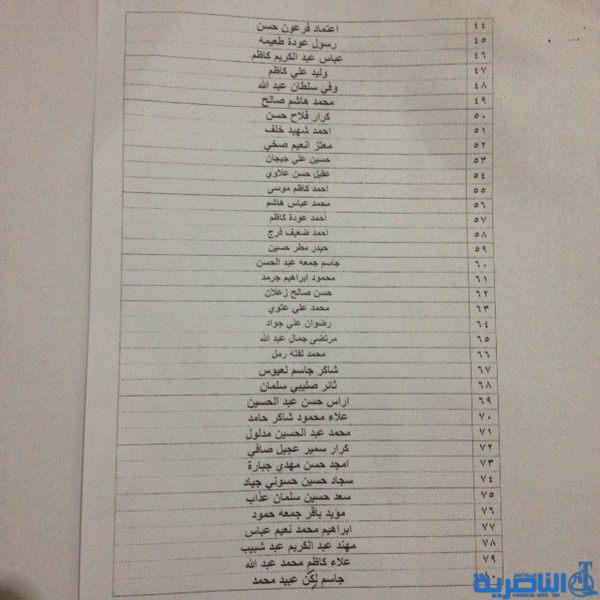 ٤٤ اعتماد فرعون حسن
٤٥ رسول عودة طعيمه
٤٦ عباس عبد الكريم كاظم
٤٧ وليد علي كاظم
٤٨ وفي سلطان عبد الله
٤٩ محمد هاشم صالح
٥٠ كرار فلاح حسن
٥١ احمد شهيد خلف
٥٢ معتز انعيم صخي
٥٣ حسين علي جيجان
٥٤ عقيل حسن علاوي
٥٥ احمد كاظم موسى
٥٦ محمد عباس هاشم
٥٧ احمد عودة كاظم
٥٨ احمد ضعيف فرج
٥٩ حيدر مطر حسين
٦٠ جاسم جمعه عبد الحسن
٦١ محمود ابراهيم جرمد
٦٢ حسن صالح زعلان
٦٣ محمد علي عتوي
٦٤ رضوان علي جواد
٦٥ مرتضى جمال عبد الله
٦٦ محمد لفته رمل
٦٧ شاكر جاسم لعيوس
٦٨ ثائر صليبي سلمان
٦٩ اراس حسن عبد الحسين
٧٠ علاء محمود شاكر حامد
٧١ محمد عبد الحسين مدلول
٧٢ كرار سمير عجيل صافي
٧٣ امجد حسن مهدي جبارة
٧٤ سجاد حسين حسوني جياد
٧٥ سعد حسين سلمان عذاب
٧٦ مؤيد باقر جمعه حمود
٧٧ ابراهيم محمد نعيم عباس
٧٨ مهند عبد الكريم عبد شبيب
٧٩ علاء كاظم محمد عبد الله
٨٠ جاسم لكن عبيد محمد
الناصرية